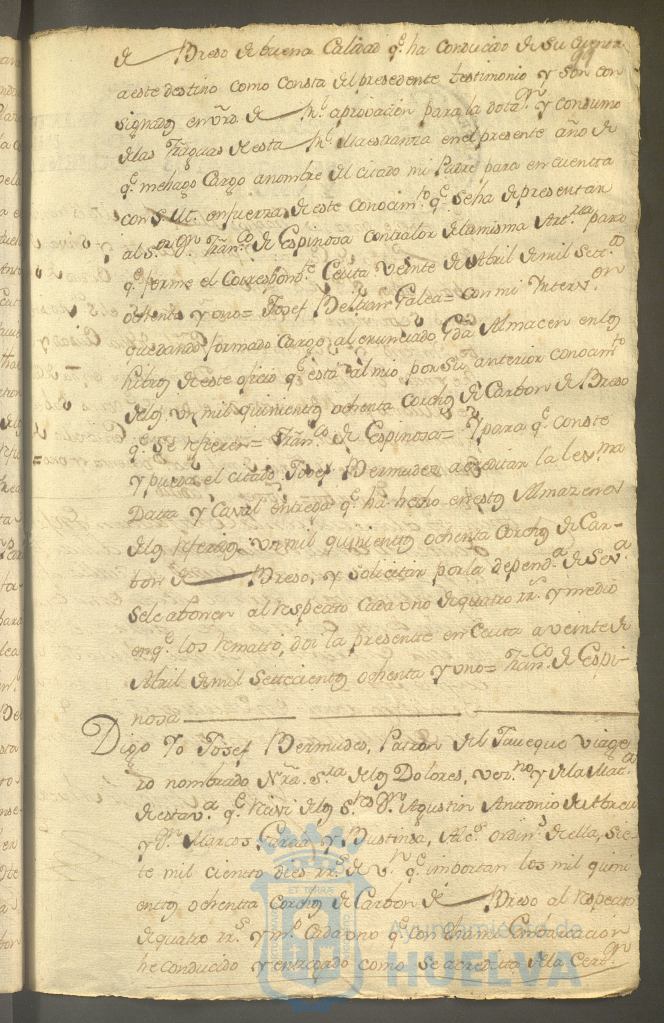 de Breso de buena Calidad q.e ha conducido de su cuenta
a este destino como consta del presedente testimonio y son con
signados en vrd. de R.l aprovacion para la dotaz.on y consumo
de las fraguas de esta R.l Maestranza en el presente año de
q.e me hago Cargo a nombre del citado mi Padre para en cuenta
con S.M. en fuerza de este conocim.to q.e se ha de presentar
al S.or D.n Fran.co de Espinosa contralor de la misma para
q.e forme el correspond.te Ceuta veinte de Abril de mil Set.os
ochenta y uno= Josef Beltran Galea= con mi Interv.on
quedando formado Cargo al enunciado Gda Almacen en los
libros de este oficio q.e está al mio por su anterior conocim.to
de los un mil quinientos ochenta Corchos de Carbon de Breso
q.e se refieren= Fran.co de Espinosa= Y para q.e conste
y pueda el citado Josef Bermudez acreditar la lexma
Data y Caval entrega q.e ha hecho en estos Almazenes
de los referidos un mil quinientos ochenta Corchos de Car-
bon de Breso, y solicitar por la depend.a de Sev.a
se le abonen al respecto cada uno de quatro rr.s y medio
en q.e los remató, doi la presente en Ceuta a veinte de
Abril de mil Setecientos ochenta y uno= Fran.co de Espi-
nosa
Digo Yo Josef Bermudes, Patron del Taueque viage
ro nombrado Nra. S.ra de los Dolores, vez.no y de la Mat.a
de esta v.a q.e reciví de los S.res D.n Agustin Antonio de Abreu
y D.n Marcos Garcia y Bustinsa, Alc.s ordin.s de ella, Sie-
te mil ciento dies rr.s de v.n q.e importan los mil quini
entos ochenta Corchos de Carbon de Breso al respecto
de quatro rr.s y m.o Cada uno q.e con dha mi Embarcacion
he conducido y entregado como se acredita de la Cerz.on
ET TERRÆ
Ayuntamiento de
HUELVA